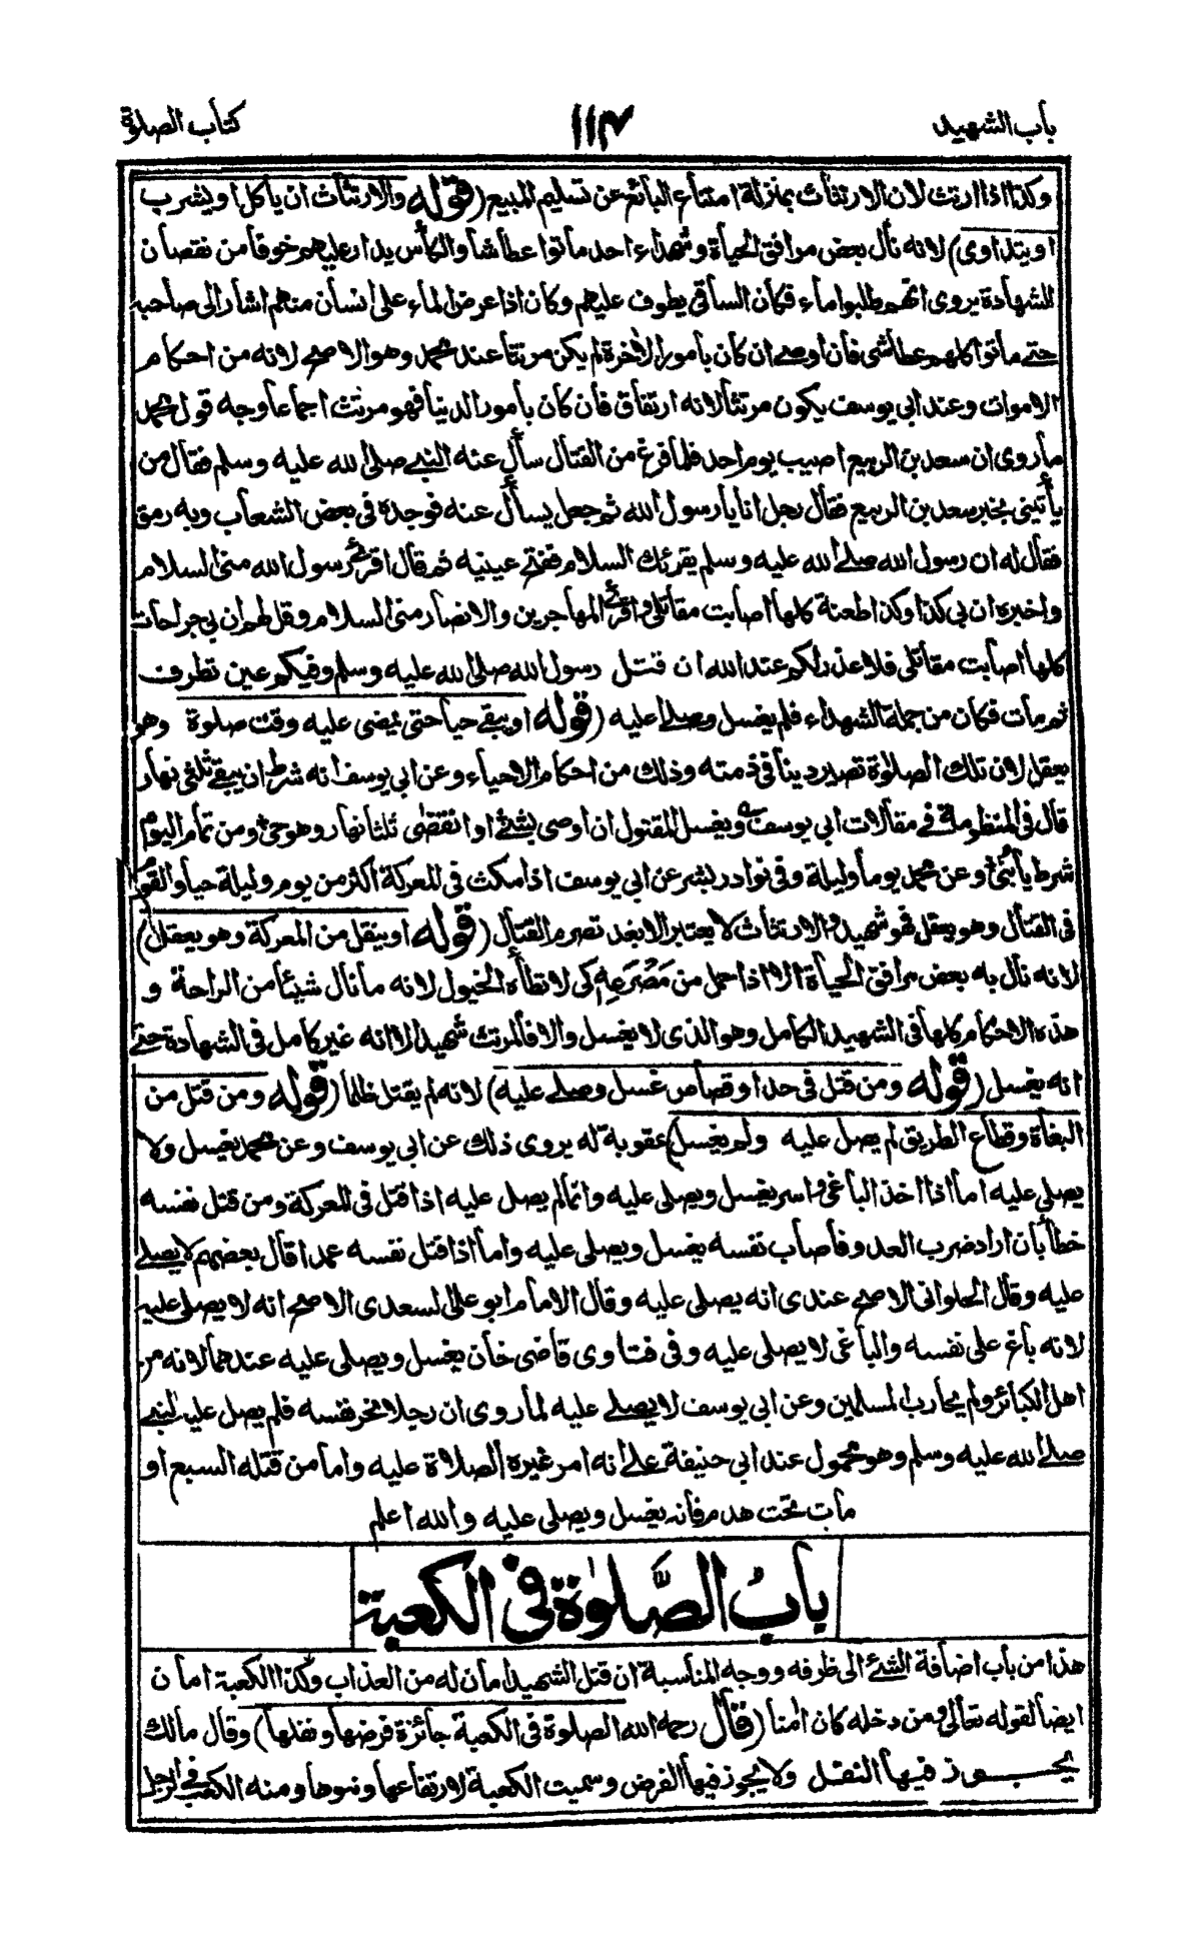 باب الشهيد
١١٣
كتاب الصلوة
وكذا اذا ارتث لان الارتثاث بمنزلة امتناع البائع عن تسليم المبيع (قوله والارتثاث ان ياكل او يشرب
او يتداوى) لانه نال بعض مرافق الحياة وشهداء احد ماتوا عطاشا والكأس يدار عليهم خوفا من نقصان
الشهادة يروى انهم طلبوا ماء فكان الساقى يطوف عليهم وكان اذا عرض الماء على انسان منهم اشار الى صاحبه
حتى ماتوا كلهم عطاشى فان اوصى ان كان بامور الآخرة لم يكن مرتثا عند محمد وهو الاصح لانه من احكام
الاموات وعند ابى يوسف يكون مرتثا لانه ارتفاق فان كان بامور الدنيا فهو مرتث اجماعا وجه قول محمد
ما روى ان سعد بن الربيع اصيب يوم احد فلما فرغ من القتال سأل عنه النبى صلى الله عليه وسلم فقال من
يأتينى بخبر سعد بن الربيع فقال رجل انا يا رسول الله ثم جعل يسأل عنه فوجده فى بعض الشعاب وبه رمق
فقال له ان رسول الله صلى الله عليه وسلم يقرئك السلام ففتح عينيه ثم قال اقرئ رسول الله منى السلام
واخبره ان بى كذا وكذا طعنة كلها اصابت مقاتلى واقرئ المهاجرين والانصار منى السلام وقل لهم ان بى جراحات
كلها اصابت مقاتلى فلا عذر لكم عند الله ان قتل رسول الله صلى الله عليه وسلم وفيكم عين تطرف
ثم مات فكان من جملة الشهداء فلم يغسل وصلى عليه (قوله او يبقى حيا حتى يمضى عليه وقت صلوة وهو
يعقل لان تلك الصلوة تصير دينا فى ذمته وذلك من احكام الاحياء وعن ابى يوسف انه شرط ان يبقى ثلثى نهار
قال فى المنظومة فى مقالات ابى يوسف ويغسل المقتول ان اوصى بشئ او انقضى ثلثا نهار وهو حى ومن تمام اليوم
شرط يا بنى وعن محمد يوما وليلة وفى نوادر بشر عن ابى يوسف اذا مكث فى المعركة اكثر من يوم وليلة حيا والقوم
فى القتال وهو يعقل فهو شهيد والارتثاث لا يعتبر الا بعد تصرم القتال (قوله او ينقل من المعركة وهو يعقل)
لانه نال به بعض مرافق الحياة الا اذا حمل من مَصْرَعِهِ كى لا تطأه الخيول لانه ما نال شيئا من الراحة و
هذه الاحكام كلها فى الشهيد الكامل وهو الذى لا يغسل والا فالمرتث شهيد الا انه غير كامل فى الشهادة حتى
انه يغسل (قوله ومن قتل فى حد او قصاص غسل وصلى عليه) لانه لم يقتل ظلما (قوله ومن قتل من
البغاة وقطاع الطريق لم يصل عليه ولم يغسل) عقوبة له يروى ذلك عن ابى يوسف وعن محمد يغسل ولا
يصلى عليه اما اذا اخذ الباغى واسر يغسل ويصلى عليه وانما لم يصل عليه اذا قتل فى المعركة ومن قتل نفسه
خطأ بان اراد ضرب العدو فاصاب نفسه يغسل ويصلى عليه واما اذا قتل نفسه عمدا قال بعضهم لا يصلى
عليه وقال الحلوانى الاصح عندى انه يصلى عليه وقال الامام ابو على السعدى الاصح انه لا يصلى عليه
لانه باغ على نفسه والباغى لا يصلى عليه وفى فتاوى قاضى خان يغسل ويصلى عليه عندهما لانه من
اهل الكبائر ولم يحارب المسلمين وعن ابى يوسف لا يصلى عليه لما روى ان رجلا نحر نفسه فلم يصل عليه النبى
صلى الله عليه وسلم وهو محمول عند ابى حنيفة على انه امر غيره الصلاة عليه واما من قتله السبع او
مات تحت هدم فانه يغسل ويصلى عليه والله اعلم
بابُ الصَّلوٰة فى الكعبة
هذا من باب اضافة الشئ الى ظرفه ووجه المناسبة ان قتل الشهيد امان له من العذاب وكذا الكعبة امان
ايضا لقوله تعالى ومن دخله كان اٰمنا (قال رحمه الله الصلوة فى الكعبة جائزة فرضها ونفلها) وقال مالك
يجوز فيها النفل ولا يجوز فيها الفرض وسميت الكعبة لارتفاعها ونتوها ومنه الكعب فى الرجل